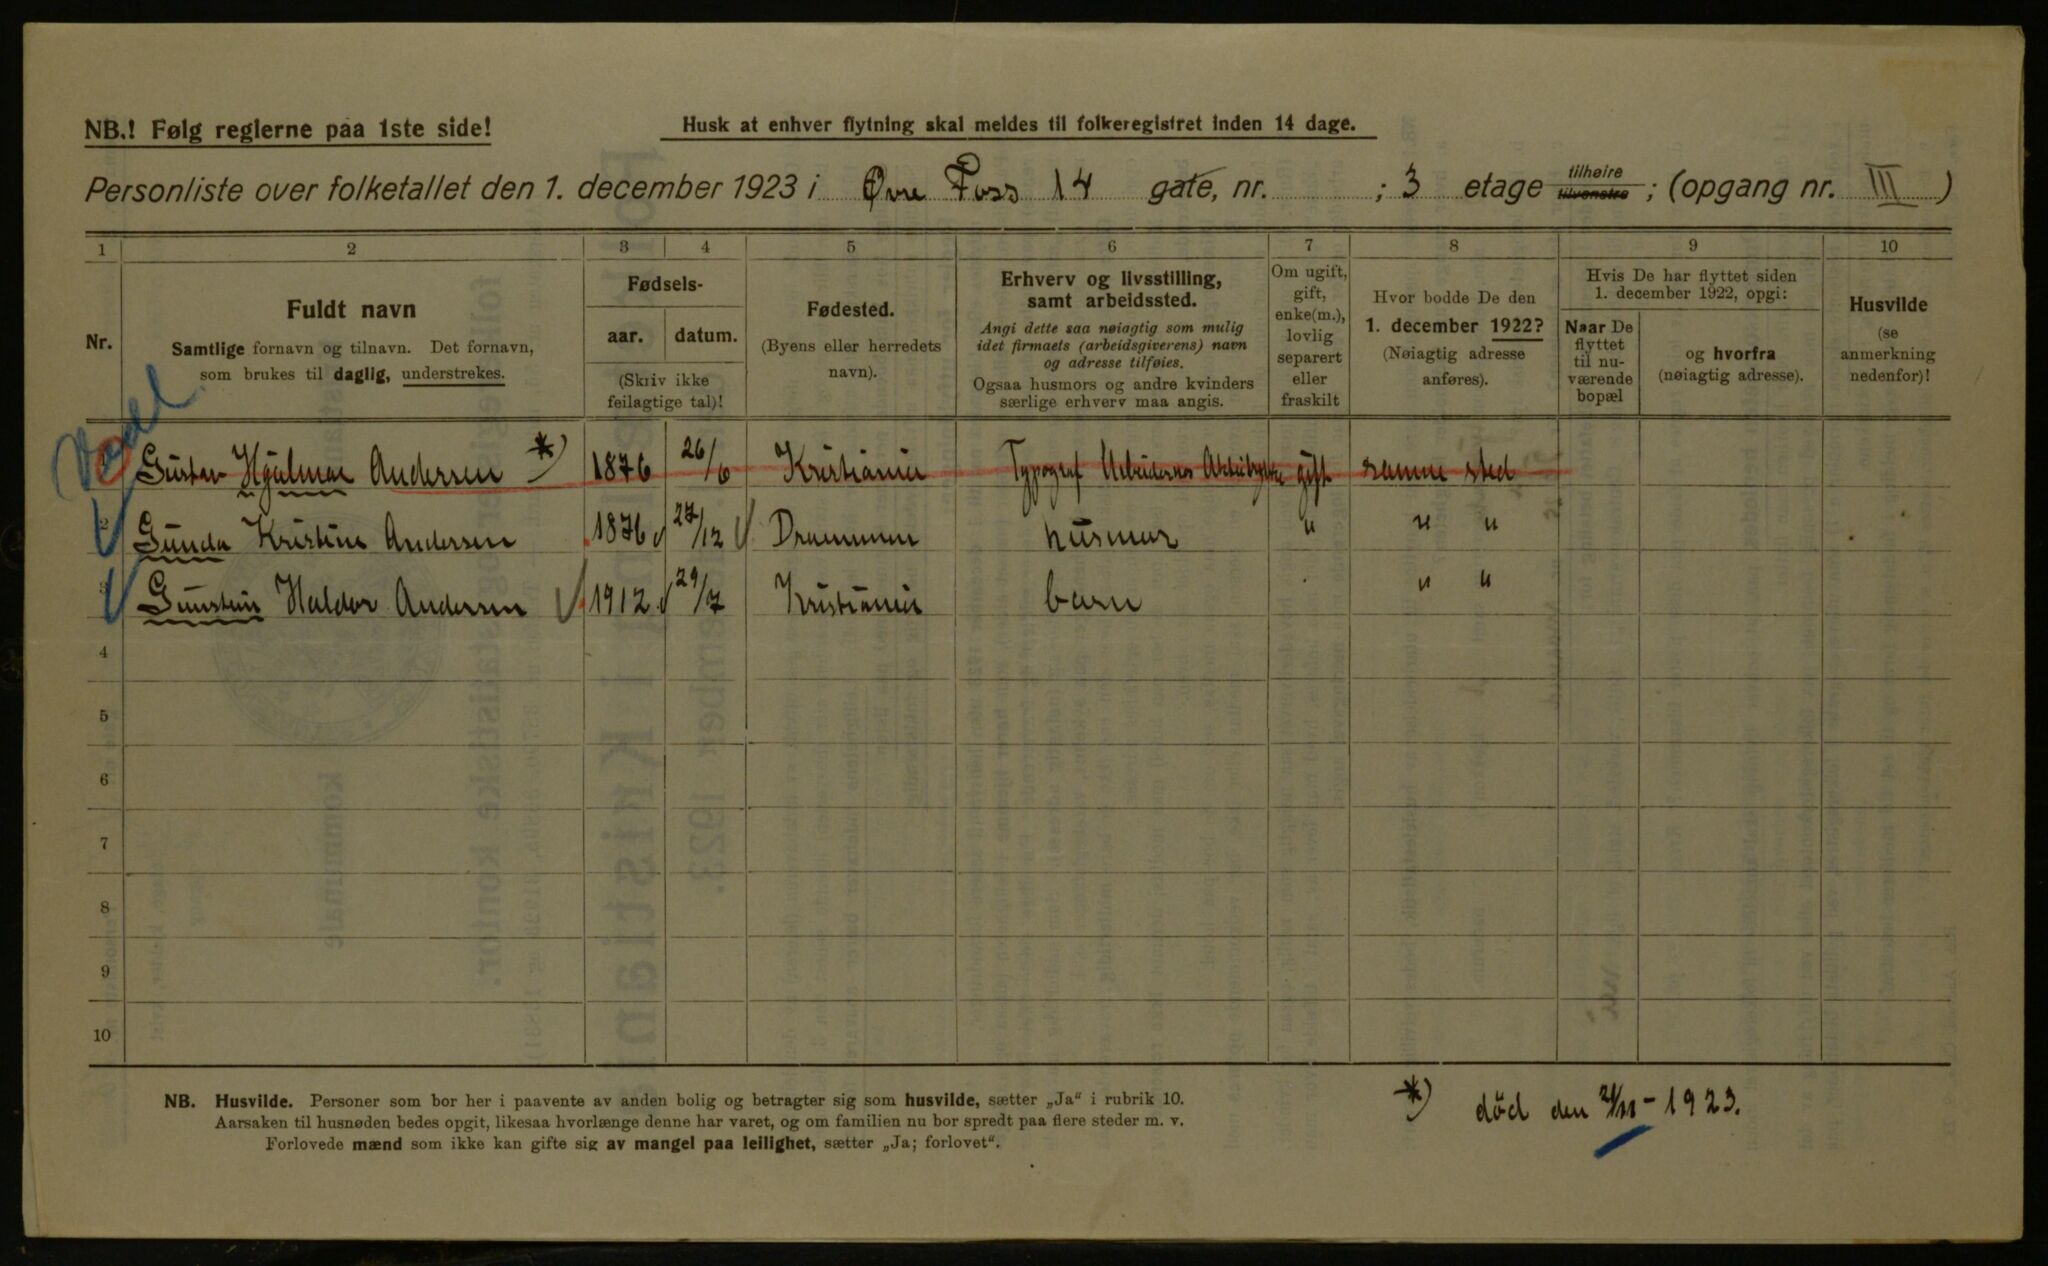 NB.! Følg reglerne paa 1ste side!
Husk at enhver flytning skal meldes til folkeregistret inden 14 dage.
Personliste over folketallet den 1. december 1923 i Øvre Foss 14 gate, nr. ; 3 etage tilhøire tilvenstre ; (opgang nr. III )
1 2 3 4 5 6 7 8 9 10
Nr.
Fuldt navn
Samtlige fornavn og tilnavn. Det fornavn,
som brukes til daglig, understrekes.
Fødsels-
aar. datum.
(Skriv ikke
feilagtige tal)!
Fødested.
(Byens eller herredets
navn).
Erhverv og livsstilling,
samt arbeidssted.
Angi dette saa nøiagtig som mulig
idet firmaets (arbeidsgiverens) navn
og adresse tilføies.
Ogsaa husmors og andre kvinders
særlige erhverv maa angis.
Om ugift,
gift,
enke(m.),
lovlig
separert
eller
fraskilt
Hvor bodde De den
1. december 1922?
(Nøiagtig adresse
anføres).
Hvis De har flyttet siden
1. december 1922, opgi:
Naar De
flyttet
til nu-
værende
bopæl
og hvorfra
(nøiagtig adresse).
Husvilde
(se
anmerkning
nedenfor)!
Gustav Hjalmar Andersen *) 1876 26/6 Kristiania Typograf Arbeidernes gift samme sted
2 Gunda Kristine Andersen 1876 27/12 Drammen husmor " " "
3 Gunstein Haldor Andersen 1912 29/7 Kristiania barn " "
4
5
6
7
8
9
10
NB. Husvilde. Personer som bor her i paavente av anden bolig og betragter sig som husvilde, sætter „Ja“ i rubrik 10.
Aarsaken til husnøden bedes opgit, likesaa hvorlænge denne har varet, og om familien nu bor spredt paa flere steder m. v.
Forlovede mænd som ikke kan gifte sig av mangel paa leilighet, sætter „Ja; forlovet“.
*) død den 21/11 - 1923.